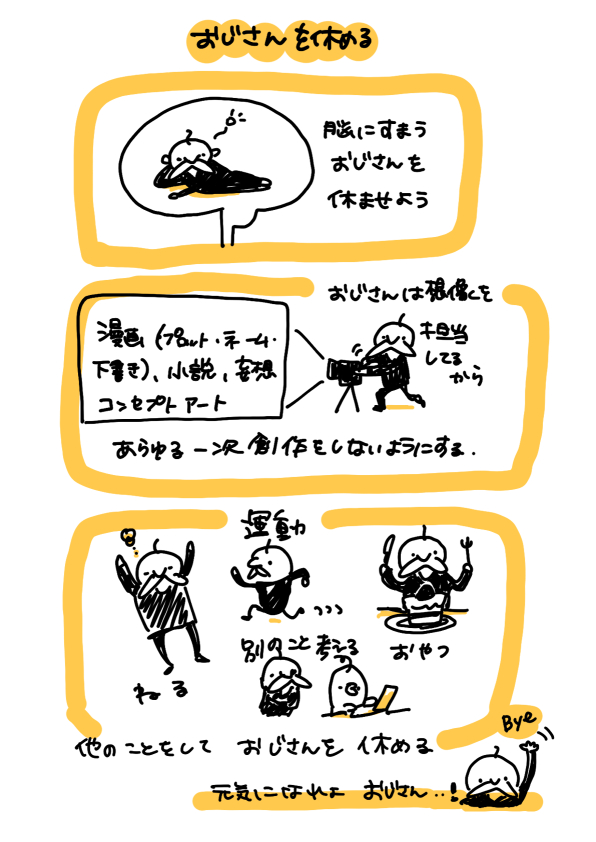 おじさんを休める
脳にすまう
おじさんを
休ませよう
おじさんは想像を
担当
してる
から
漫画(プロット・ネーム・
下書き)、小説、妄想
コンセプトアート
あらゆる一次創作をしないようにする.
運動
ねる
別のこと考える
おやつ
他のことをして おじさんを 休める
Bye
元気になれよ おじさん..!